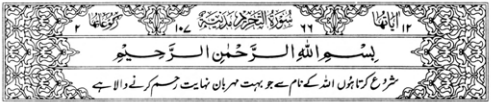 اٰیَاتُهَا ۱۲ ۶۶ سُوْرَةُ التَّحْرِیْمِ مَدَنِیَّةٌ ۱۰۷ رُکُوْعَاتُهَا ۲
بِسْمِ اللّٰهِ الرَّحْمٰنِ الرَّحِیْمِ
شروع کرتا ہوں اللہ کے نام سے جو بہت مہربان نہایت رحم کرنے والا ہے